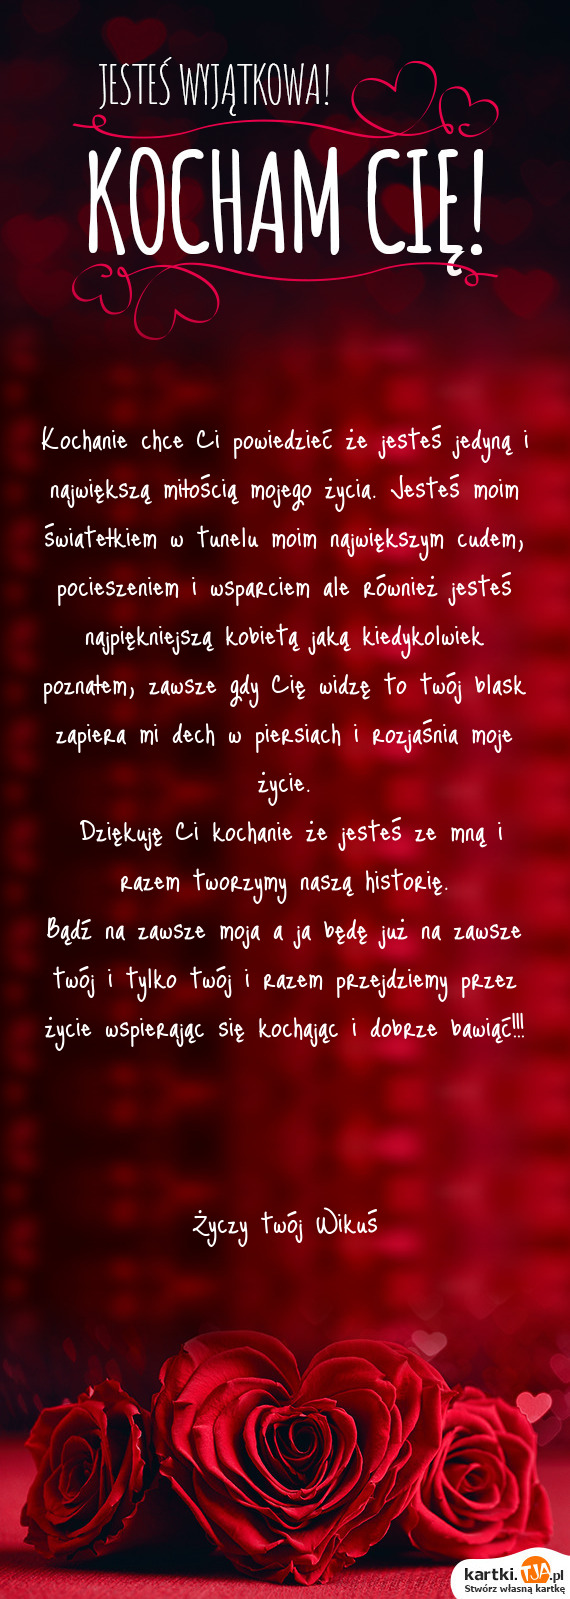 JESTEŚ WYJĄTKOWA!
KOCHAM CIĘ!
Kochanie chce Ci powiedzieć że jesteś jedyną i
największą miłością mojego życia. Jesteś moim
światełkiem w tunelu moim największym cudem,
pocieszeniem i wsparciem ale również jesteś
najpiękniejszą kobietą jaką kiedykolwiek
poznałem, zawsze gdy Cię widzę to twój blask
zapiera mi dech w piersiach i rozjaśnia moje
życie.
Dziękuję Ci kochanie że jesteś ze mną i
razem tworzymy naszą historię.
Bądź na zawsze moja a ja będę już na zawsze
twój i tylko twój i razem przejdziemy przez
życie wspierając się kochając i dobrze bawiąć!!!
Życzy twój Wikuś
kartki.TJA.pl
Stwórz własną kartkę